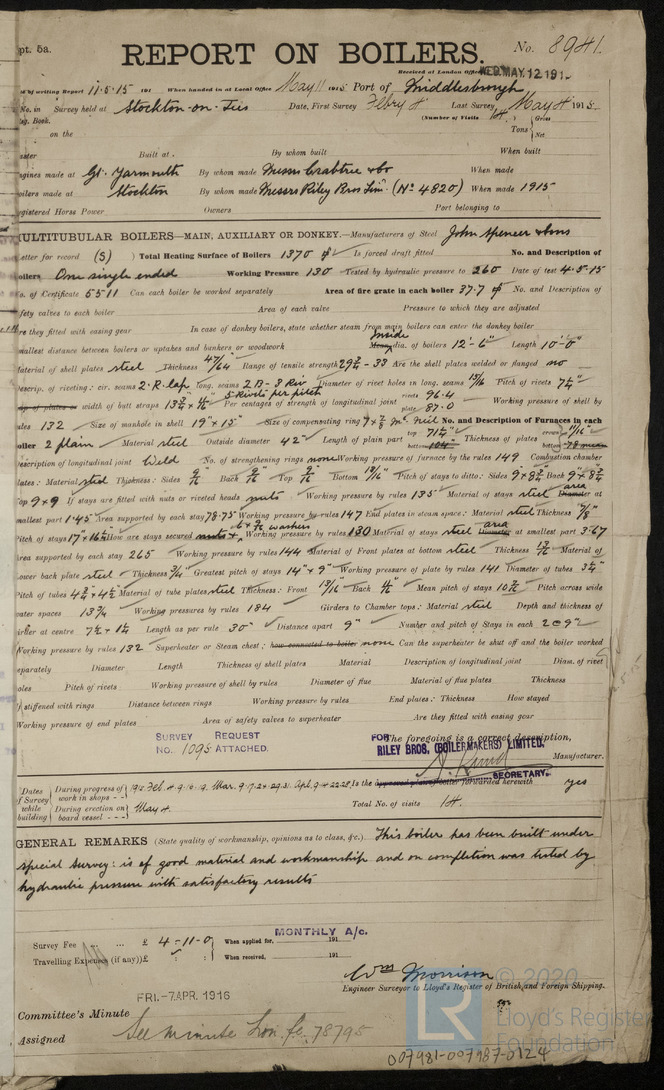 pt. 5a.
REPORT ON BOILERS.
No. 8941.
Received at London Office WED. MAY. 12 191
of writing Report 11.5.15 191 When handed in at Local Office May 11 1915 Port of Middlesbrough
No. in Survey held at Stockton-on-Tees Date, First Survey Febry 4 Last Survey May 4 1915
Reg. Book. (Number of Visits 14.)
on the Tons { Gross Net
Built at By whom built When built
Engines made at Gt. Yarmouth By whom made Messrs Crabtree & Co When made
Boilers made at Stockton By whom made Messrs Riley Bros Lim. (No 4820) When made 1915
Registered Horse Power Owners Port belonging to
MULTITUBULAR BOILERS—MAIN, AUXILIARY OR DONKEY.—Manufacturers of Steel John Spencer & Sons
Letter for record (S) Total Heating Surface of Boilers 1370 Is forced draft fitted No. and Description of
Boilers One single ended Working Pressure 130 Tested by hydraulic pressure to 260 Date of test 4.5.15
No. of Certificate 5511 Can each boiler be worked separately Area of fire grate in each boiler 37.7 No. and Description of
safety valves to each boiler Area of each valve Pressure to which they are adjusted
Are they fitted with easing gear In case of donkey boilers, state whether steam from main boilers can enter the donkey boiler
Smallest distance between boilers or uptakes and bunkers or woodwork Inside Mean dia. of boilers 12'-6" Length 10'-0"
Material of shell plates steel Thickness 47/64 Range of tensile strength 29 3/4 - 33 Are the shell plates welded or flanged no
Descrip. of riveting: cir. seams 2.R.lap long. seams 2 B-3 Riv Diameter of rivet holes in long. seams 15/16 Pitch of rivets 7 1/4"
5 Rivets per pitch
Lap of plates or width of butt straps Per centages of strength of longitudinal joint rivets 96.4 plate 87.0 Working pressure of shell by
rules 132 Size of manhole in shell 19" x 15" Size of compensating ring No. and Description of Furnaces in each
boiler 2 plain Material steel Outside diameter 42" Length of plain part top bottom Thickness of plates crown bottom
Description of longitudinal joint Weld No. of strengthening rings none Working pressure of furnace by the rules 149 Combustion chamber
plates: Material steel Thickness: Sides 9/16 Back 9/16 Top 9/16 Bottom 13/16 Pitch of stays to ditto: Sides 9 x 8 3/4 Back 9 x 8 3/4
Top 9 x 9 If stays are fitted with nuts or riveted heads nuts Working pressure by rules 135 Material of stays steel area Diameter at
smallest part 1.45 Area supported by each stay 78.75 Working pressure by rules 147 End plates in steam space: Material steel Thickness 7/8
Pitch of stays 17 x 16 1/2 How are stays secured nuts & washers Working pressure by rules 130 Material of stays steel area Diameter at smallest part 3.67
Area supported by each stay 265 Working pressure by rules 144 Material of Front plates at bottom steel Thickness 13/16 Material of
Lower back plate steel Thickness 3/4 Greatest pitch of stays 14" x 9" Working pressure of plate by rules 141 Diameter of tubes 3 1/4"
Pitch of tubes 4 3/4 x 4 1/2 Material of tube plates steel Thickness: Front 13/16 Back 11/16 Mean pitch of stays 10 3/8 Pitch across wide
water spaces 13 3/4 Working pressures by rules 184 Girders to Chamber tops: Material steel Depth and thickness of
girder at centre 7 1/2 x 1 1/2 Length as per rule 30" Distance apart 9" Number and pitch of Stays in each 2 @ 9"
Working pressure by rules 132 Superheater or Steam chest; how connected to boiler none Can the superheater be shut off and the boiler worked
separately Diameter Length Thickness of shell plates Material Description of longitudinal joint Diam. of rivet
holes Pitch of rivets Working pressure of shell by rules Diameter of flue Material of flue plates Thickness
If stiffened with rings Distance between rings Working pressure by rules End plates: Thickness How stayed
Working pressure of end plates Area of safety valves to superheater Are they fitted with easing gear
SURVEY REQUEST
No. 1095 ATTACHED.
The foregoing is a correct description,
FOR RILEY BROS. (BOILERMAKERS) LIMITED. Manufacturer.
SECRETARY.
Dates of Survey while building { During progress of work in shops - - 1915 Feb. 4. 9. 16. 19. Mar. 9. 17. 24. 29. 31. Apl. 9. 22. 28. Is the approved plan of boiler forwarded herewith yes
During erection on board vessel - - - May 4. Total No. of visits 14.
GENERAL REMARKS (State quality of workmanship, opinions as to class, &c.) This boiler has been built under
special survey: is of good material and workmanship and on completion was tested by
hydraulic pressure with satisfactory results
MONTHLY A/c.
Survey Fee ... ... £ 4-11-0 When applied for, 191
Travelling Expenses (if any) £ : : When received, 191
Wm Morrison
Engineer Surveyor to Lloyd's Register of British and Foreign Shipping.
FRI. - 7 APR. 1916
Committee's Minute
Assigned See minute Lon. fe. 78795
© 2020
LR
Lloyd's Register
Foundation
007981-007987-0124